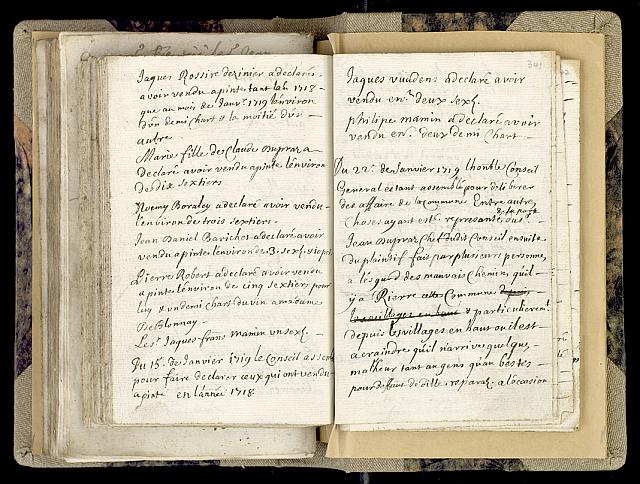 Jaques Rossire dezinier a declaré
avoir vendu a pinte tant lan 1718 –
que au mois de Janvr 1719 lenviron
d'un demi chart & la moitié d'un –
autre
Marie fille de Claude Dupraz a
declaré avoir vendu a pinte l'environ
de dix sextiers
Noemy Boraley a declaré avoir vendu
l'environ de trois sextiers.
Jean Daniel Barichet a declaré avoir
vendu a pinte l'environ de 3. sex.
Pierre Robert a declaré avoir vendu
a pinte l'environ de cinq sextiers pour
luy & un demi chars du vin a madame
de Blonnay
Le Sr Jaques frans mamin un sex. –
Du 15. de Janvier 1719 le Conseil assem
pour faire declarer ceux qui ont vendu
a pinte en l'année 1718
341
Jaques vuadens a declaré avoir
vendu en.n deux sex.
philipe mamin a declaré avoir
vendu en. deux demi chart –
Du 22.e de Janvier 1719 lhonble Conseil
General estant assemblé pour deliberer
des affaire de la commune Entre autre
Choses ayant esté representé, de la part
Jean Dupraz Chef dudit Conseil ensuite
du plaintif fait par plusieurs personne,
a l'esgard des mauvais Chemin, quil
y a Rierre cette Commune depuis
les villages en haut & particulierem.t
depuis les villages en haut ou il est
a craindre quil n'arrive quelque,
malheur tant au gens qu'au bestes –
pour deffaut de dille. reparaō. a l'occasion